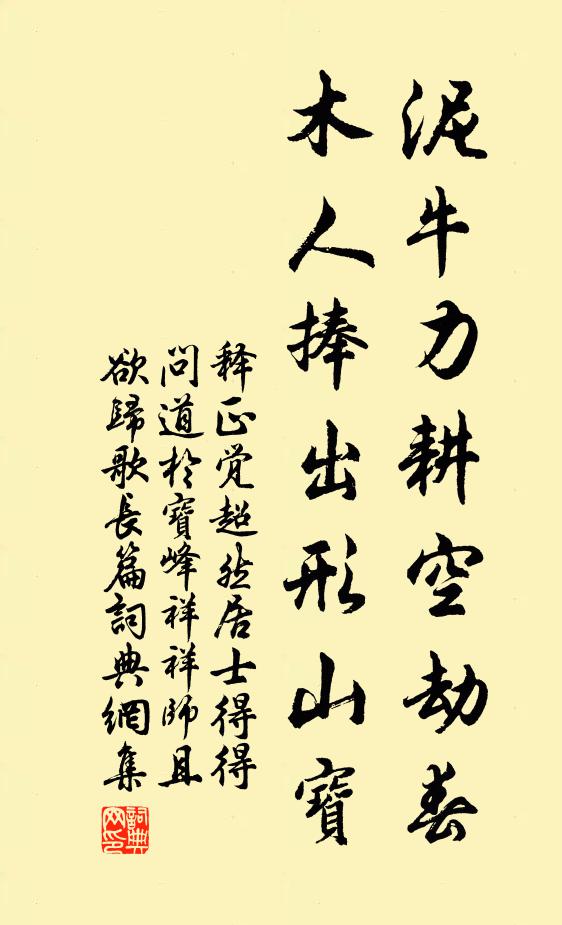 泥牛力耕空劫春
木人捧出形山寶
释正觉超然居士得得
问道於寶峰祥祥师且
欲歸歌長篇詞典網集
詞典
网印